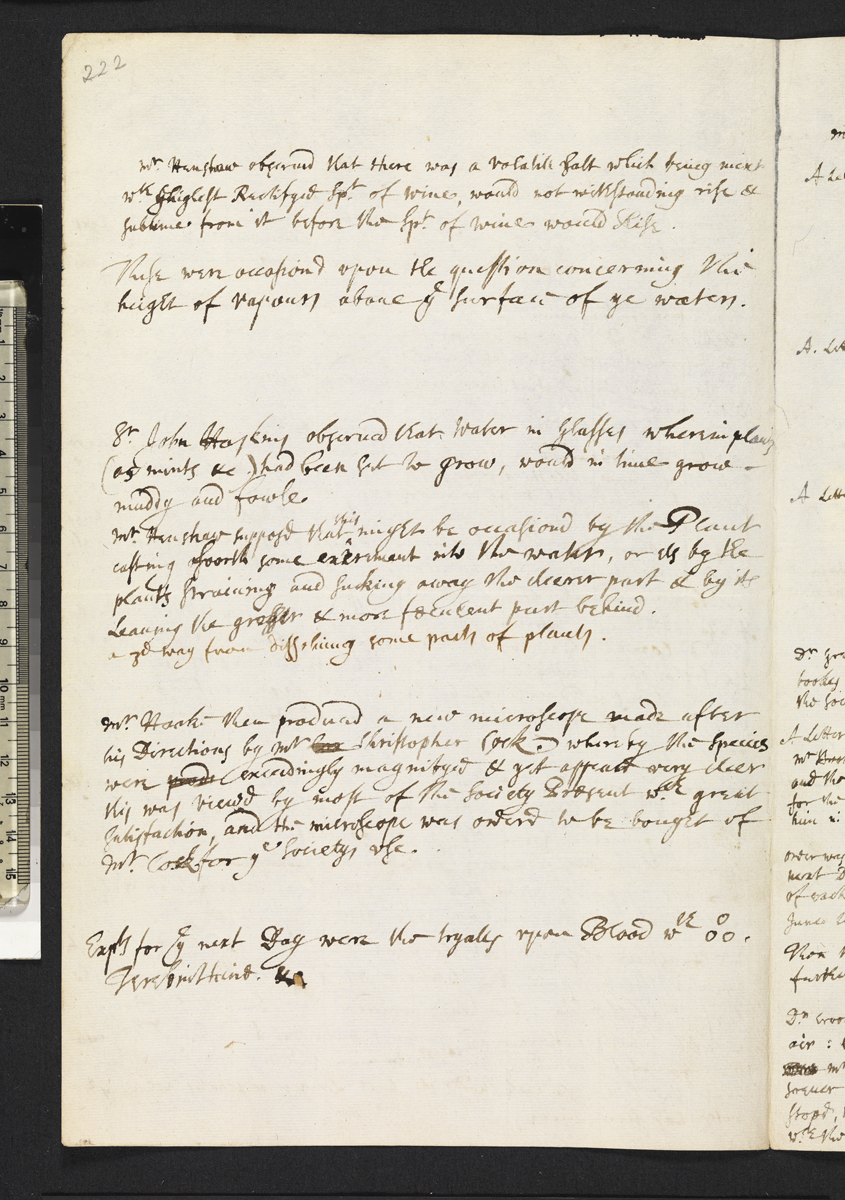 222
mr. Henshaw observd that there was a volatile Salt which being mixt
wth ye highest Rectifyed Spt. of wine, would not withstanding rise &
sublime from it before the Spt. of wine would Rise.
These were occasiond upon the question concerning the
hight of vapours aboue ye surface of ye waters.
Sr. John Hoskins obserued that water in glasses wherein plants
(as mints &c.) had been set to grow, would in time grow -
muddy and fowle.
mr. Henshaw supposd that this might be occasiond by the Plant
casting foorth some excriment into the water, or els by the
plants straining and sucking away the cleerer part & by its
Leauing the grosser & more faeculent part behind.
a 3d way from dissoluing some parts of plants.
mr. Hook then produced a new microscope made after
his Directions by mr. Christopher Cock. whereby the Species
were exceedingly magnifyed & yet appeard very cleer
this was viewd by most of the Society Present wth. great
Satisfaction, and the microscope was orderd to be bought of
Mr. Cock for ye Societys use.
Expts for ye next Day were the tryalls upon Blood wth
Terebinthine. &c
A
A. Lett
A Lette
Dr
bookes
the Soc
A Letter
mr
and the
for the
him in
order was
next D
of each
June 2
then
further
Dr. Croo
air :
mr
seuer
stopd,
wth the